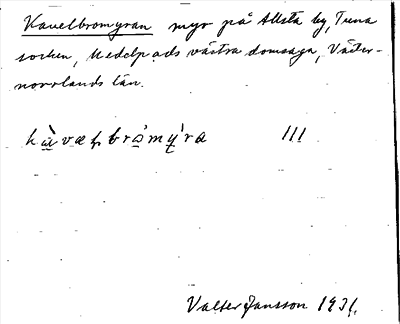 Kavelbromyran myr på Allsta by, Tuna
socken, Medelpads västra domsaga, Väster-
norrlands län.
III
Valter Jansson 1931.